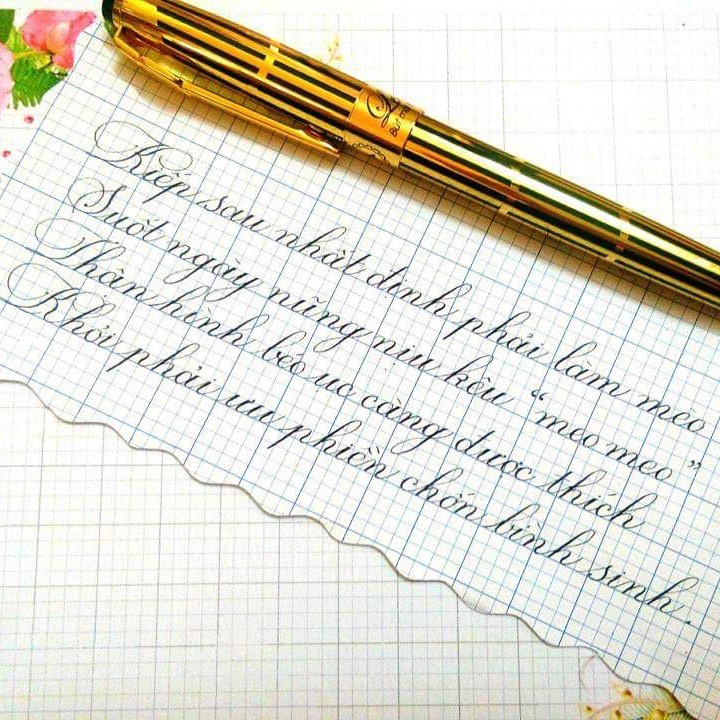 Kiếp sau nhất định phải làm mèo
Suốt ngày nũng nịu kêu “meo meo”
Thân hình béo ục càng được thích
Khỏi phải ưu phiền chốn bình sinh.